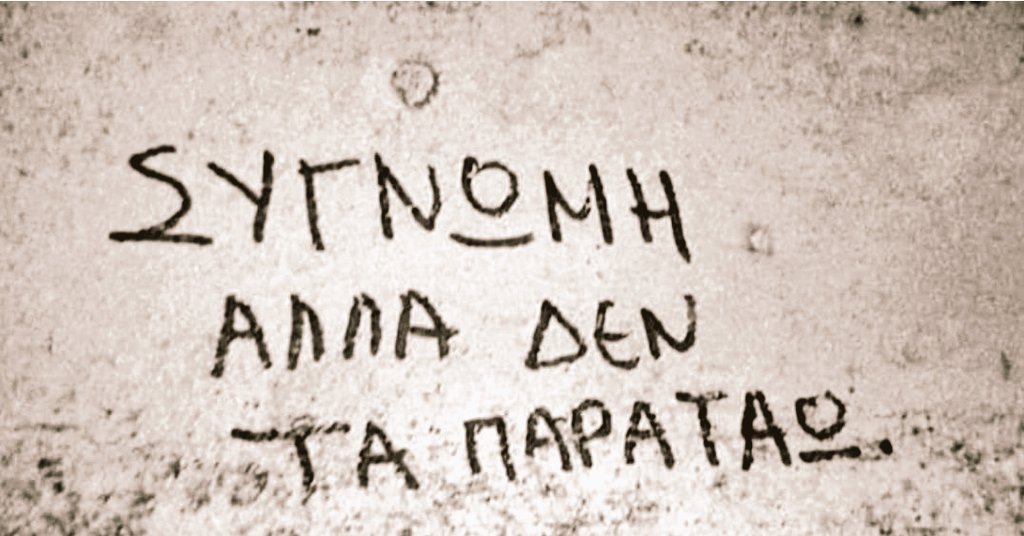 ΣΥΓΝΩΜΗ
ΑΛΛΑ ΔΕΝ
ΤΑ ΠΑΡΑΤΑΩ.